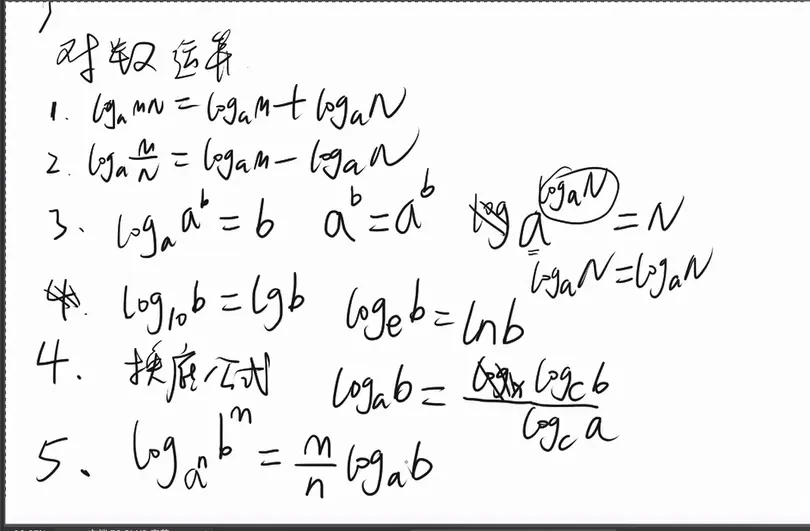 对数运算
1. log_a MN = log_a M + log_a N
2. log_a M/N = log_a M − log_a N
3、 log_a a^b = b a^b = a^b a^(log_a N) = N
log_a N = log_a N
log_10 b = lg b log_e b = ln b
4、 换底公式 log_a b = log_c b / log_c a
5、 log_(a^n) b^m = m/n log_a b